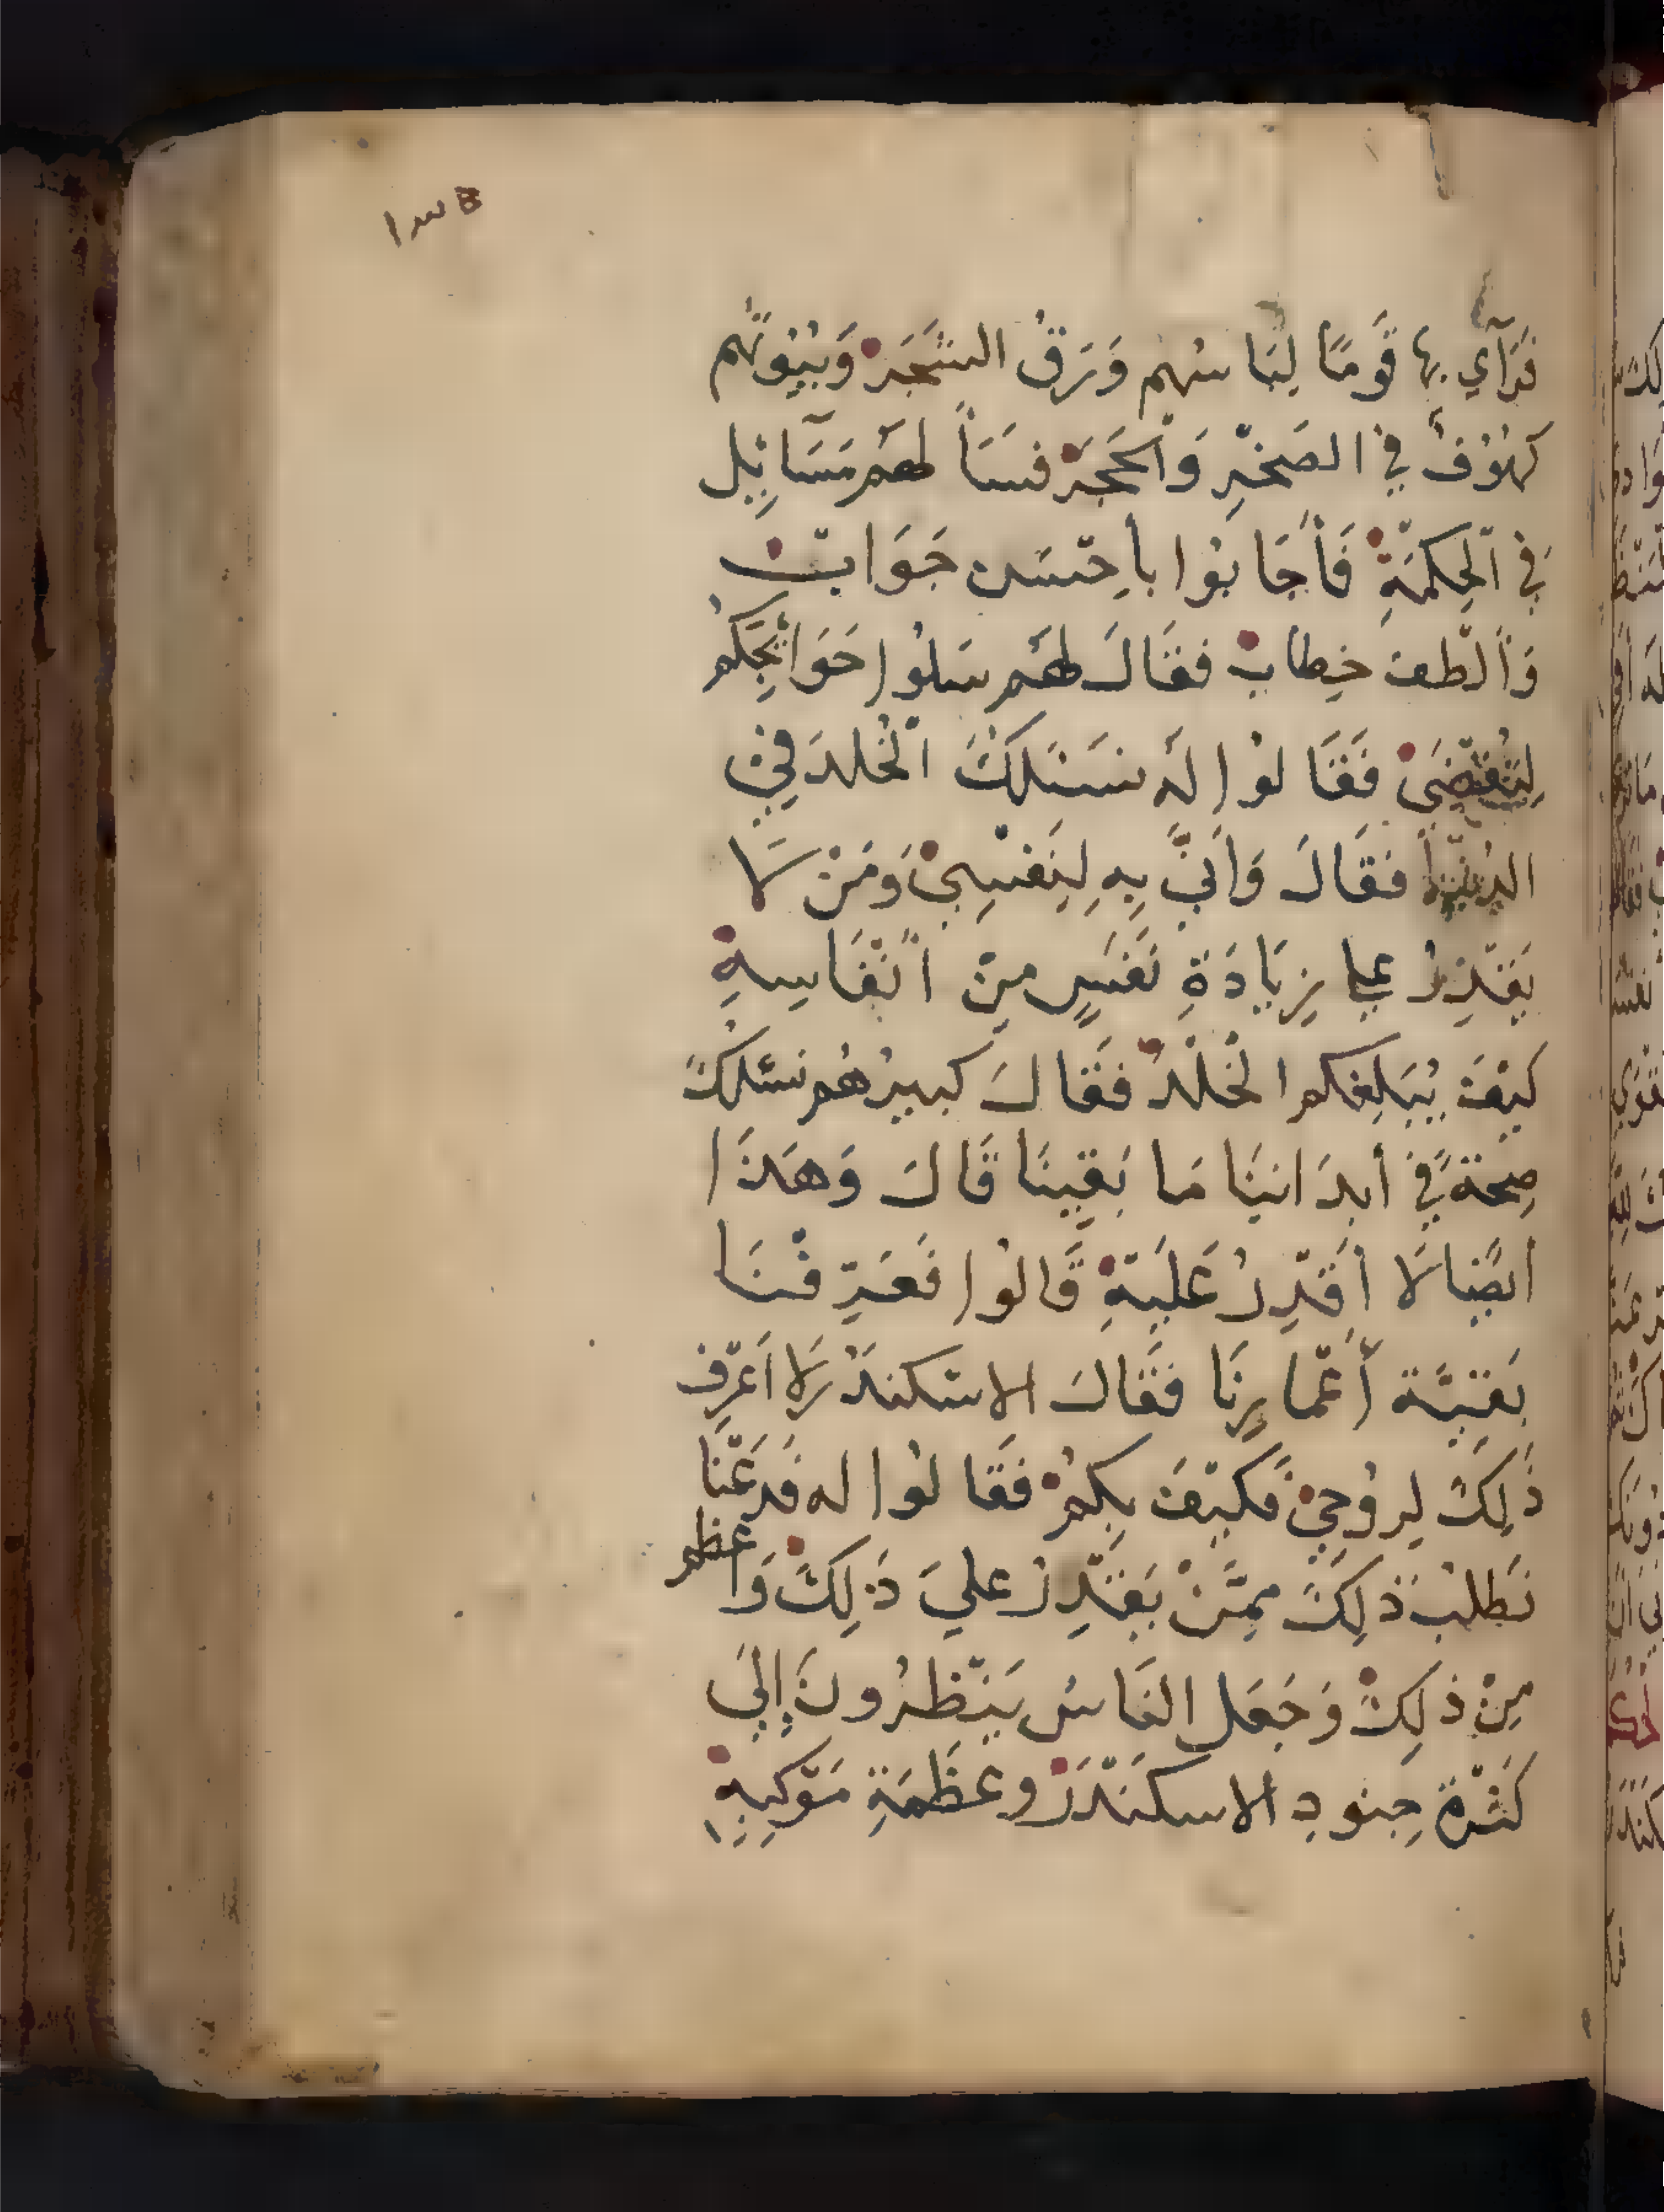 ١٣٥
فَرَآي بها قَومًا لِبَاسُهم وَرَقُ الشَجَر وَبُيُوتُهم
كهُوُفٌ في الصَخْرِ وَالحَجَر فسَأَ لهَم مَسَائِل
فِي الحِكمَةِ فَأجَابُوا بأحسَن جَوَاب
وَألطف خِطاب فقَالَ لهَم سَلُوا حَوَائِجَكم
لِتُقضَى فَقَالوُا لَه نَسئَلكَ الخُلدَ فِي
الدُنيَا فقَالَ وَأنَّي بِهِ لِنَفسِي وَمَنْ لَا
يَقدِرُ علي زِيَادَةِ نَفَسٍ مِن أنفَاسِهِ
كَيفَ يُبَلِغكم الخُلدَ فَقَالَ كبيرُهُم نَسئلكَ
صِحةً فِي أبدَاننِا مَا بَقِينَا قَالَ وَهَذَا
ايضًا لَا أقدِرُ عَليَهِ قَالوُا فَعَرِفنَا
بَقيَّة أعمارِنَا فقَالَ الاسكندَر لَا اَعرِف
ذَلِكَ لِروُحِي فَكيفَ بِكم فقَالوُا له فَدَعْنَا
نَطلبُ ذَلِكَ مِمَّنْ يَقدِرُ عليَ ذَلِكَ وَاعظم
مِنْ ذلِكَ وَجَعَل النَاسُ يَنظرُونَ إليَ
كَثرَة جِنودِ الاسكَندَرَ وعظَمَةِ مَوكِبِهِ